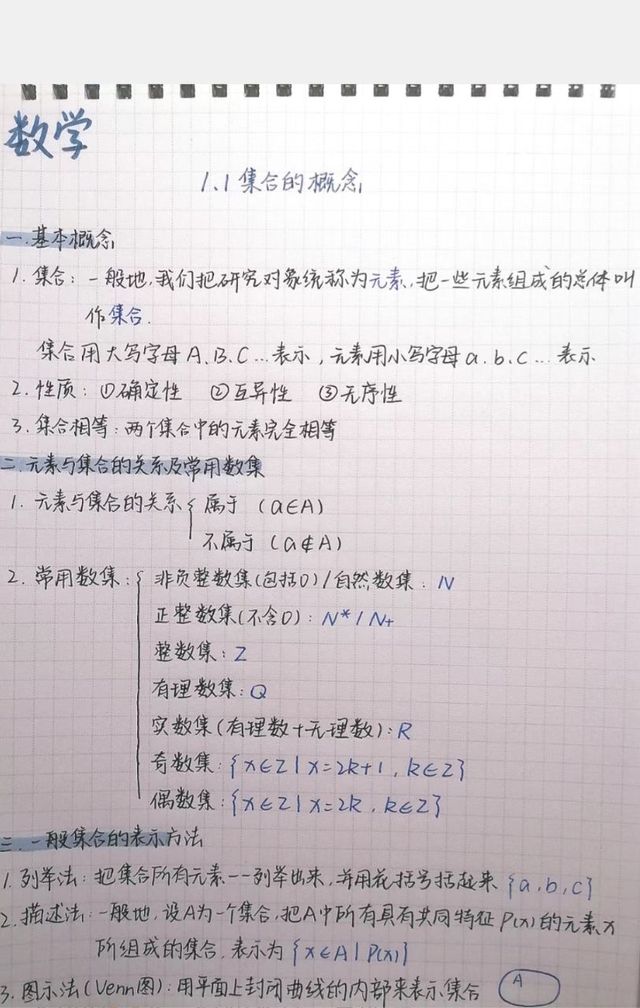 数学
1.1 集合的概念
一.基本概念
1. 集合：一般地，我们把研究对象统称为元素，把一些元素组成的总体叫
作集合.
集合用大写字母A.B.C…表示，元素用小写字母a.b.c…表示
2. 性质：①确定性 ②互异性 ③无序性
3. 集合相等：两个集合中的元素完全相等
二.元素与集合的关系及常用数集
1. 元素与集合的关系{ 属于（a∈A）
不属于（a∉A）
2. 常用数集：{ 非负整数集(包括0)/自然数集：N
正整数集(不含0)：N*/N+
整数集：Z
有理数集：Q
实数集(有理数+无理数)：R
奇数集：{x∈Z|x=2k+1，k∈Z}
偶数集：{x∈Z|x=2k，k∈Z}
三.一般集合的表示方法
1. 列举法：把集合所有元素一一列举出来，并用花括号括起来 {a,b,c}
2. 描述法：一般地，设A为一个集合，把A中所有具有共同特征P(x)的元素x
所组成的集合，表示为{x∈A|P(x)}
3. 图示法(Venn图)：用平面上封闭曲线的内部来表示集合 A